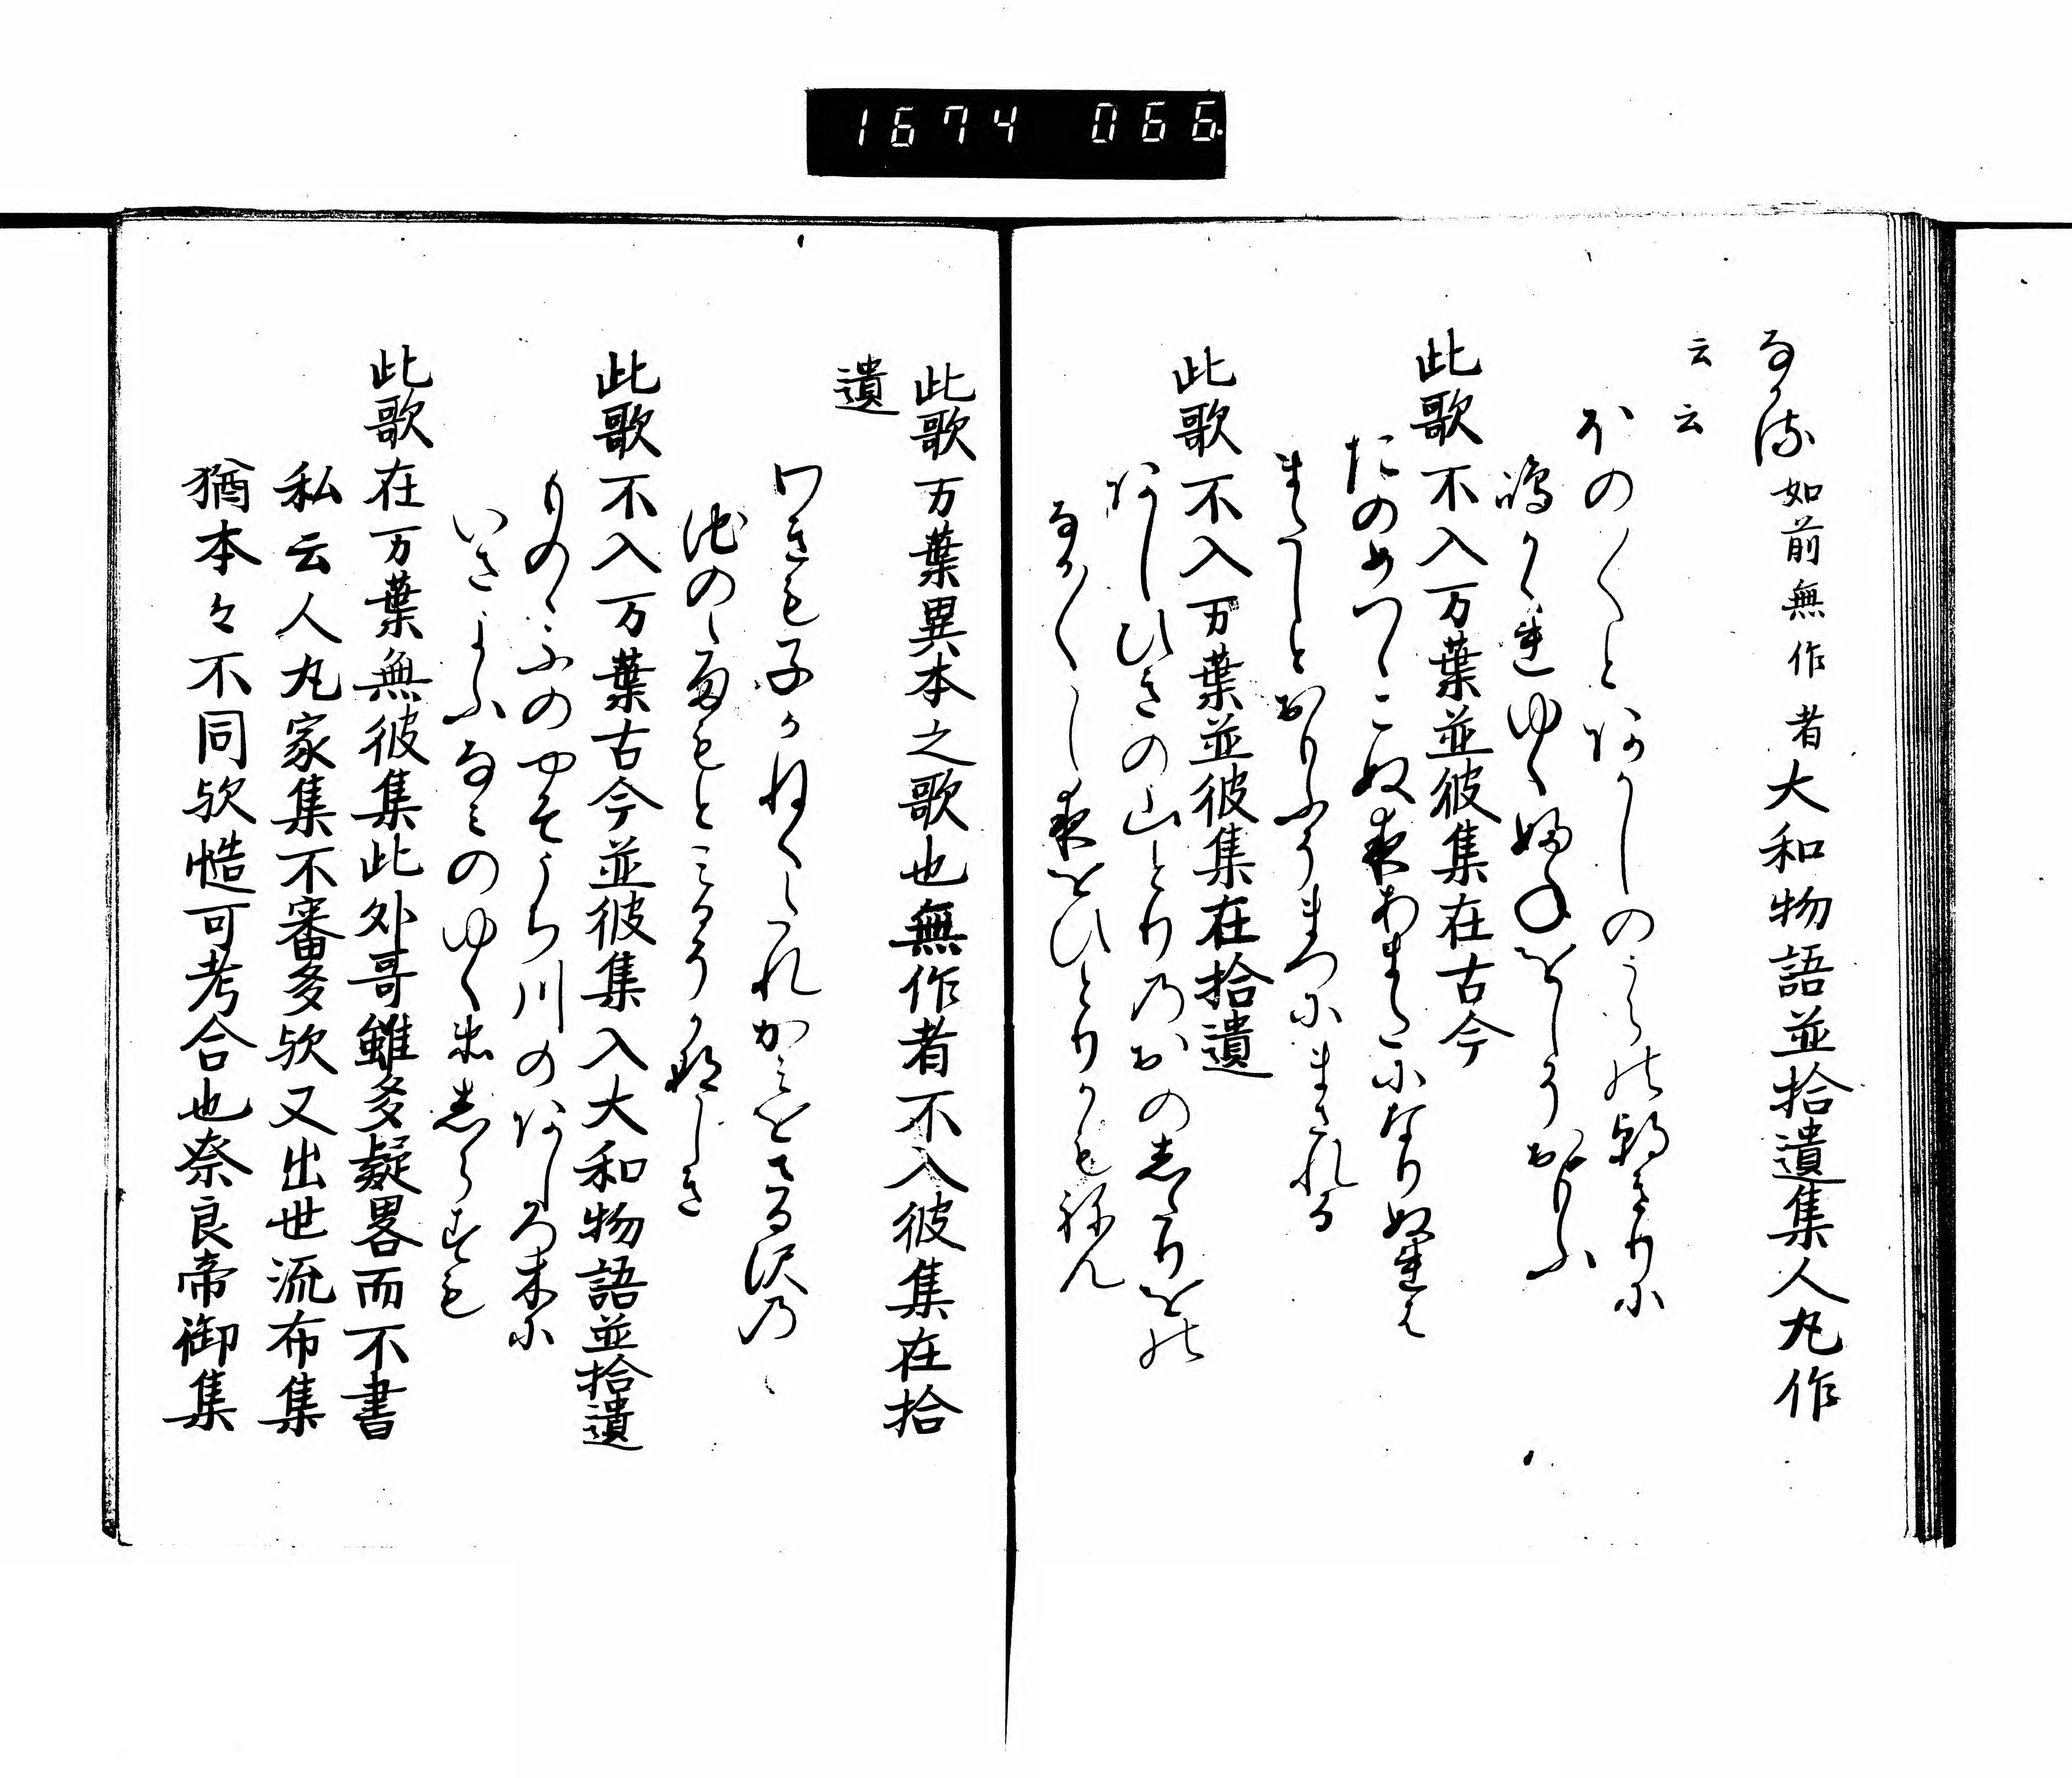 1674 066
なかる如前無作者大和物語並拾遺集人丸作
云云
ほの〱とあかしのうらの朝きりに
嶋かくれゆく婦ねをしそおもふ
此歌不入万葉並彼集在古今
たのめつゝこぬ夜あまたになりぬれは
またしとおもふそまつにまされる
此歌不入万葉並彼集在拾遺
あしひきの山とりのおのしたりをの
なか〱し夜をひとりかもねん
此歌万葉異本之歌也無作者不入彼集在拾
遺
わきも子かねくたれかみをさる沢の
池のたまもとみるそかなしき
此歌不入万葉古今並彼集入大和物語並拾遺
ものゝふのやそうち川のあしろ木に
いさよふなみのゆく衛しらすも
此歌在万葉無彼集此外哥雖多疑畧而不書
私云人丸家集不審多欤又出世流布集
猶本々不同欤慥可考合也奈良帝御集